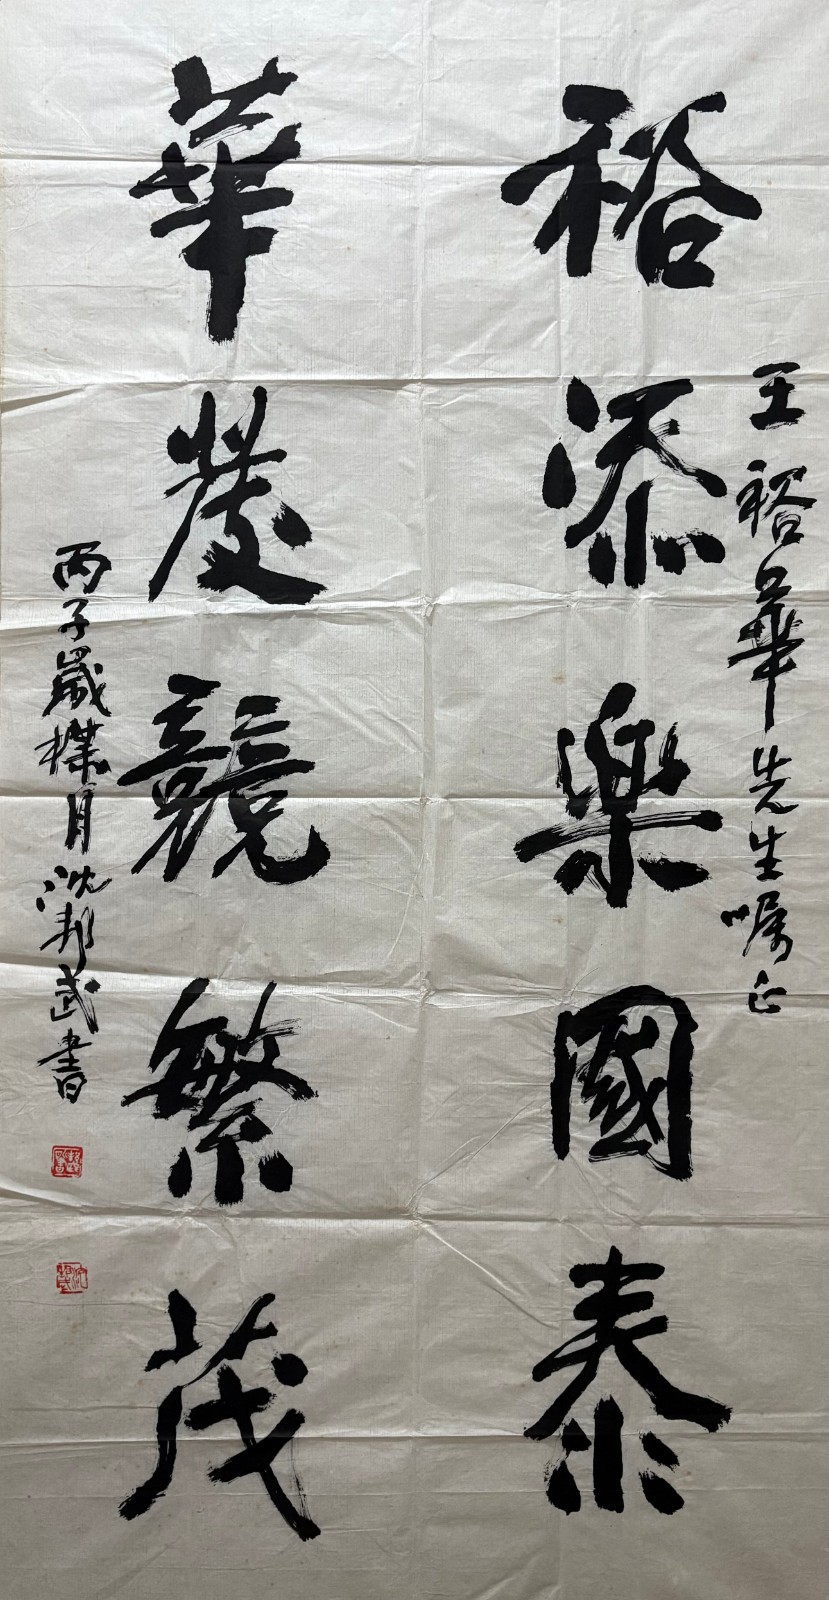 王裕華先生嘱正
裕添樂國泰
華發競繁茂
丙子歲月沈邦武書